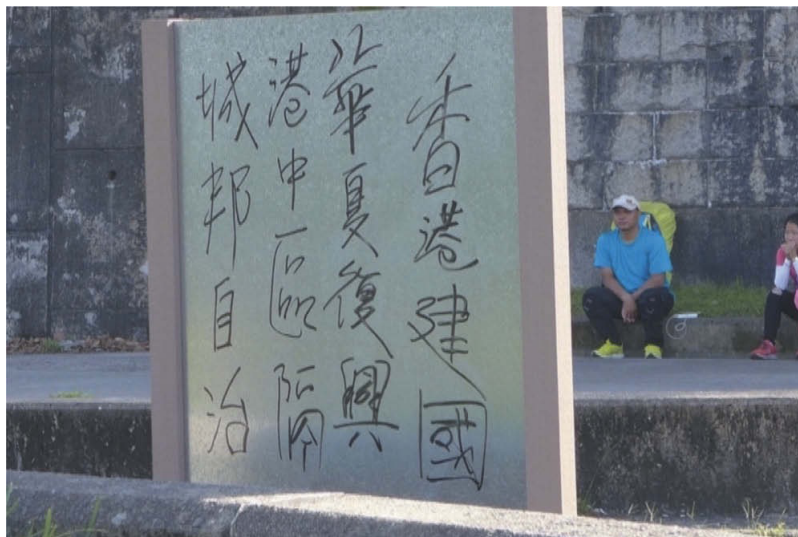 香港建國
華夏復興
港中區隔
城邦自治